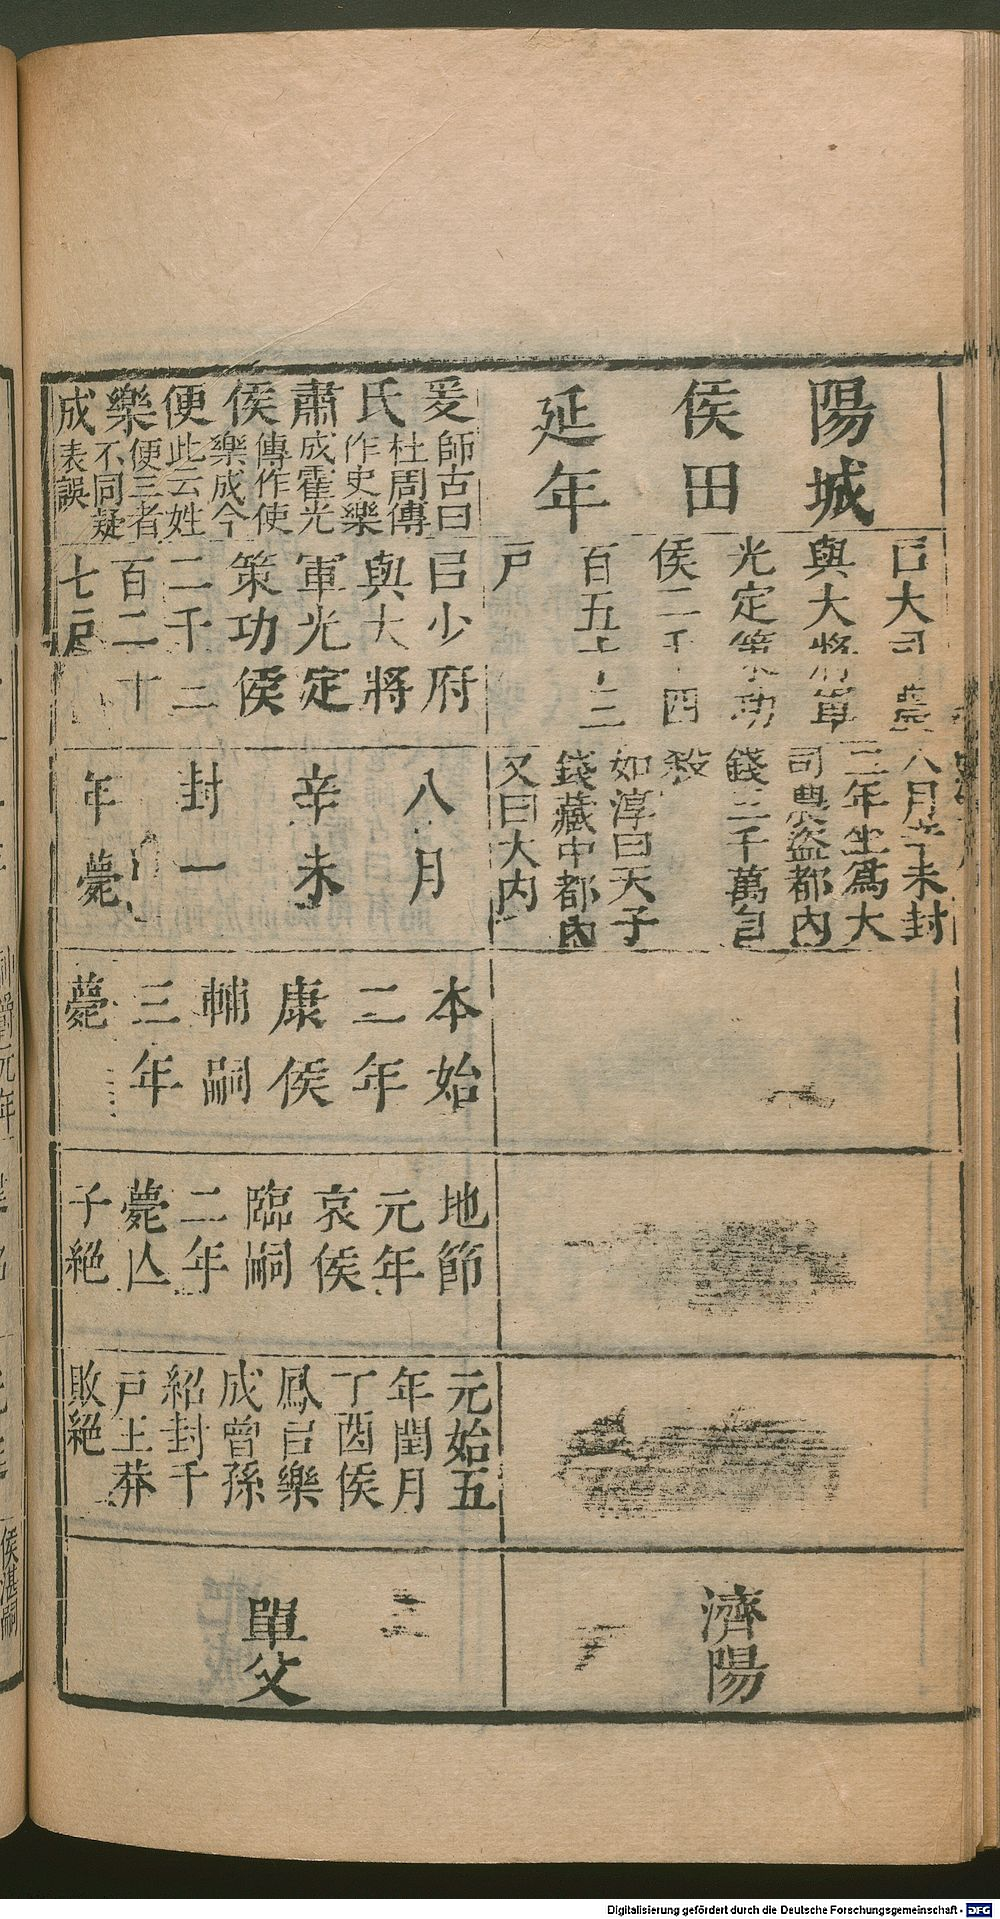 陽城
侯田
延年
㠯大司農
與大將軍
光定策功
侯二千四
百五十三
戶
八月辛未封
二年坐爲大
司農盜都內
錢三千萬自
殺
如淳曰天子
錢藏中都內
又曰大內
濟陽
爰氏肅侯便樂成
師古曰
杜周傳
作史樂
成霍光
傳作使
樂成今
此云姓
便三者
不同疑
表誤
㠯少府
與大將
軍光定
策功侯
二千二
百二十
七戶
八月
辛未
封一
年薨
本始
二年
康侯
輔嗣
三年
薨
地節
元年
哀侯
臨嗣
二年
薨亾
子絕
元始五
年閏月
丁酉侯
鳳㠯樂
成曾孫
紹封千
戶王莽
敗絕
單父
Digitalisierung gefördert durch die Deutsche Forschungsgemeinschaft - DFG